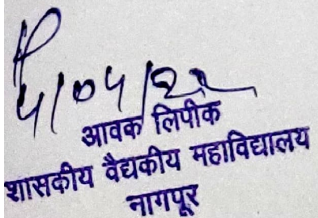 4/04/22
आवक लिपीक
शासकीय वैद्यकीय महाविद्यालय
नागपूर